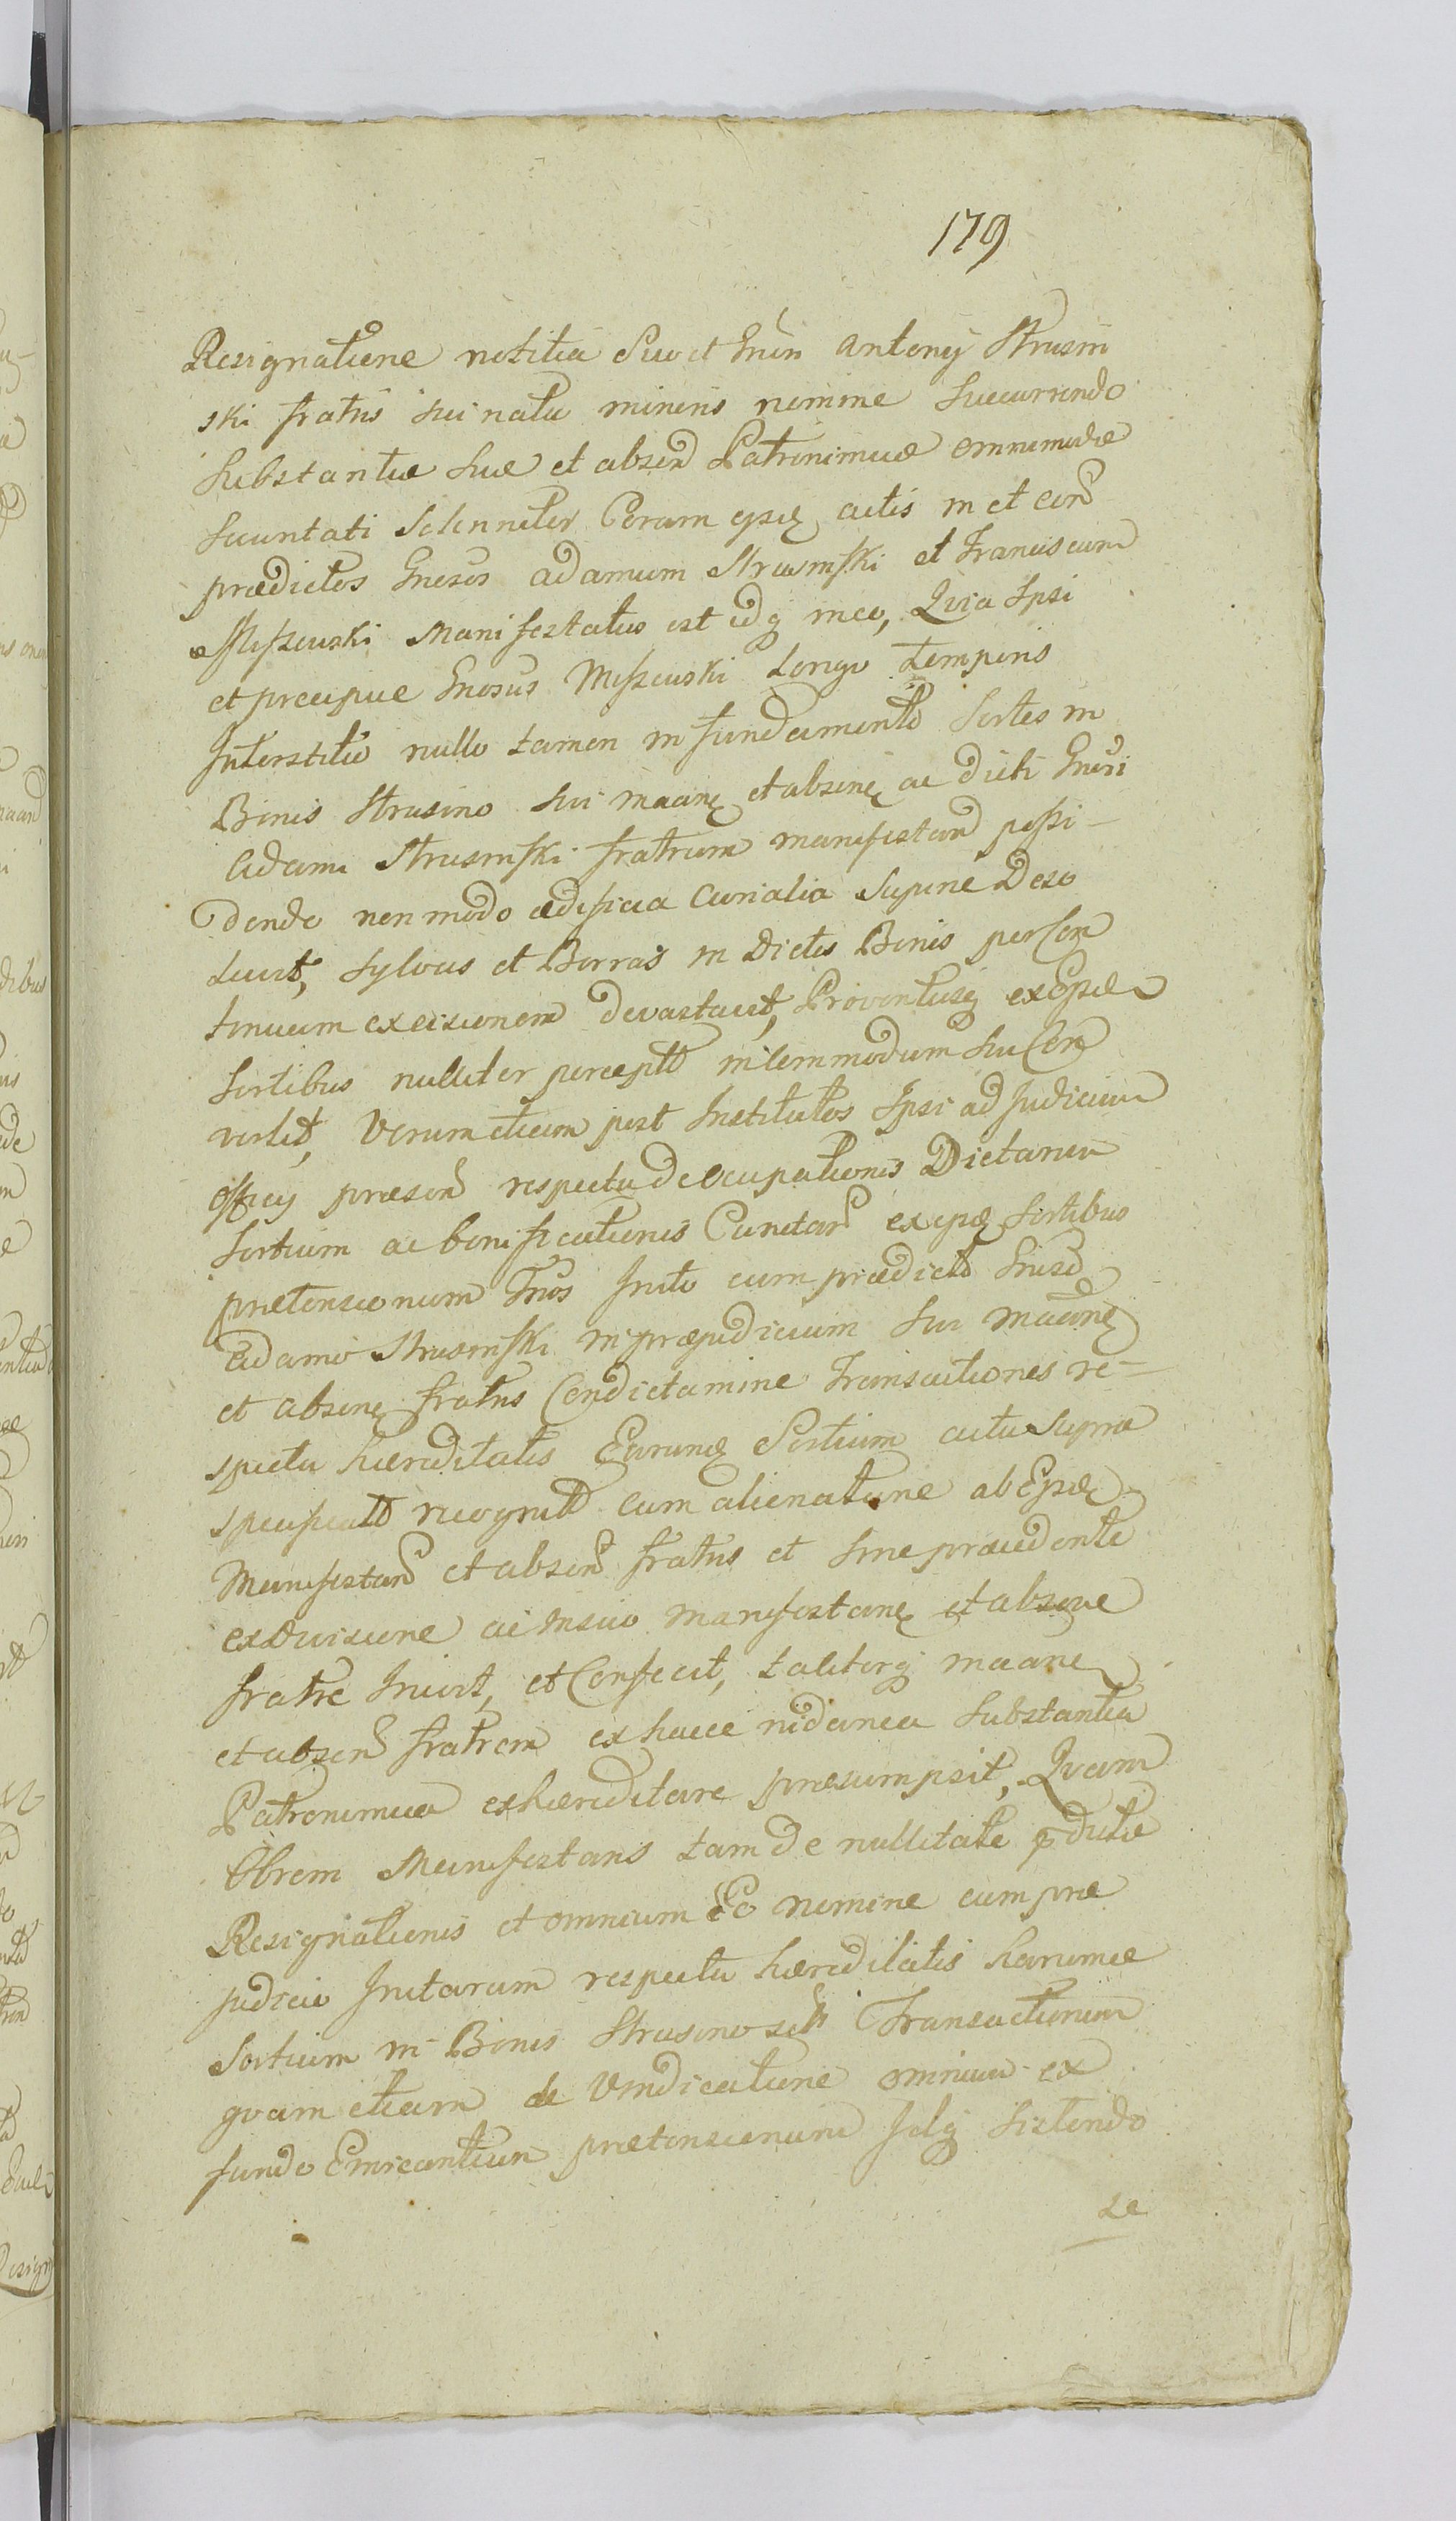 179
Resignatione notitia Suo et Gnën Antonÿ Strusin
ski fratris sui natu minoris nomine Succurrendo
Substantiæ suæ et absen Patrimonicæ omnimodæ
Securitati Solenniter Coram ejsdę actis in et con
prædictos Gnosos Adamum Strusinski et Franciscum
Miszewski Manifestatus est idq ineo, Qvia Ipsi
et precipue Gnosus Miszewski Longo Temporis
Interstitio nullo tamen in fundamento Sortes in
Bonis Strusino sui maanę et absenę ac dicti Gnosi
Adami Strusinski fratrum manifestand possi-
dendo non modo ædificia Curialia Supine Deso
lavit, Sylvas et Borras in Dictis Bonis per Con
tinuam excisionem devastavit, Proventusq ex Ejsdę
Sortibus nulliter percepto in Commodum su Con
vertit, Verum etiam post Institutos Ipsi ad Judicium
Officÿ præsen respectu de Occupationis Dictarum
Sortium ac bonificationis Cunctar ex ejsdę Sortibus
prætensionum Tnos Inito cum prædicto Gnoso
Adamo Strusinski in præjudicium sui maanę
et absenę fratris Condictamine Transactiones re-
spectu hæreditatis Earumdę Sortium actu supra
specificato recognito cum alienatione ab Ejsdę
Manifestan et absen fratris et sine præcedente
exdivisione ac inscio manifestanę et absque
fratre Inivit, et Confecit, taliterq maanę
et absen fratrem ex hacce nidanea Substantia
Patrimonica exhæreditare præsumpsit, Qvam
Obrem Manifestans tam de nullitate pdictæ
Resignationis et omnium Eo nomine cum præ
judicio Initarum respectu hæreditatis harumce
Sortium in Bonis Strusino Transactionum
qvam etiam de Vindicatione omnium ex
fundo Emicantium prætensionum Selq sistendo
se